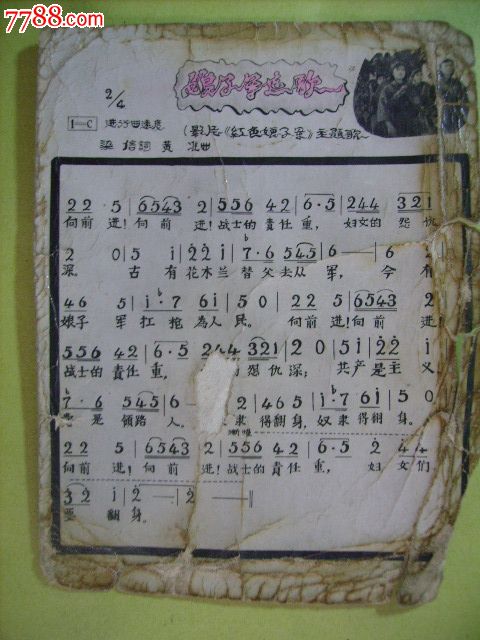 7788.com
2/4
娘子军连歌
1=C 进行曲速度
(影片《紅色娘子军》主題歌
梁信詞 黄准曲
22 5|6543 2|556 42|6·5|244 321|
向前 进!向前 进!战士的責任重, 妇女的怨仇
2 0 5 i|22 i|7·6 545|6 —|6 2
深 古有花木兰替父去从军, 今有
46 5|i·7 6i|5 0|22 5|6543 2|
娘子军扛抢為人民。 向前 进!向前 进!
556 42|6·5|244 321|2 0|5i|22 i
战士的責任重, 怨仇深; 共产是主义
7·6 545|6 — 2 465|i·7 6i|5
是領路人。 隶得翻身,奴隶得翻身。
漸慢
22 5|6543 2|556 42|6·5|2 44
向前 进!向前 进!战士的責任重, 妇女们
32 i|2 —|2 —‖
要翻身。